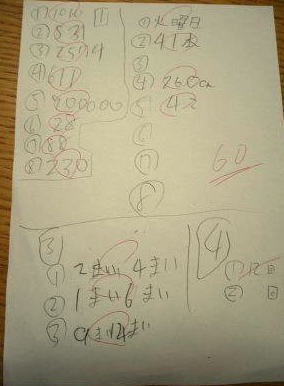 1
② 831
③ 2594
④ 611
⑤ 200000
⑥ 28
⑦ 88
⑧ 230
① 火曜日
② 41本
③
④ 260a
⑤
⑥
⑦
⑧
60
3
① 2まい 4まい
② 1まい 6まい
③ 9まい 4まい
4
① 12日
② 日